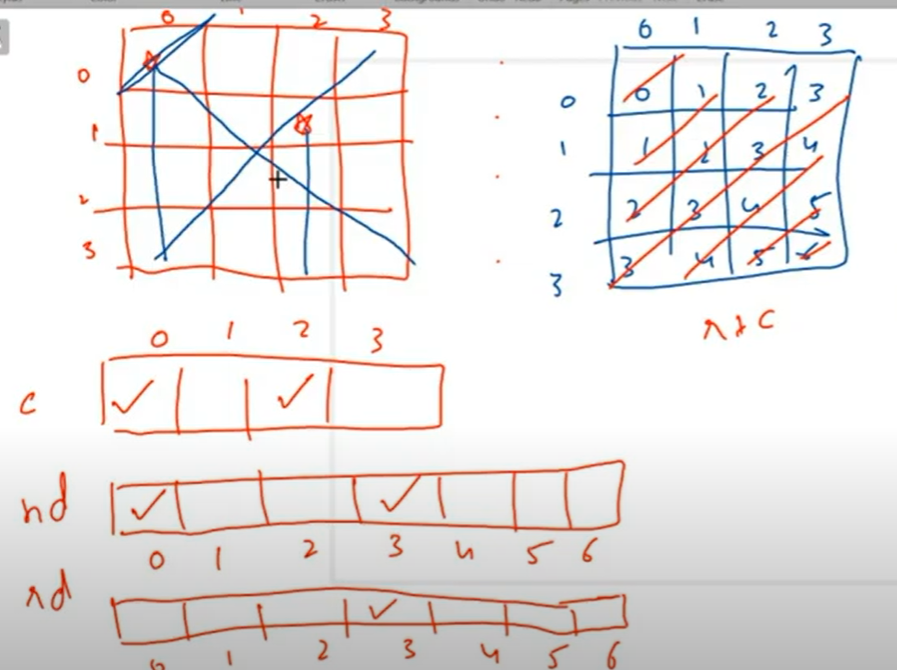 0 1 2 3
0
1
2
3
0 1 2 3
0 0 1 2 3
1 1 2 3 4
2 2 3 4 5
3 3 4 5 6
r+c
0 1 2 3
c
nd
0 1 2 3 4 5 6
rd
0 1 2 3 4 5 6